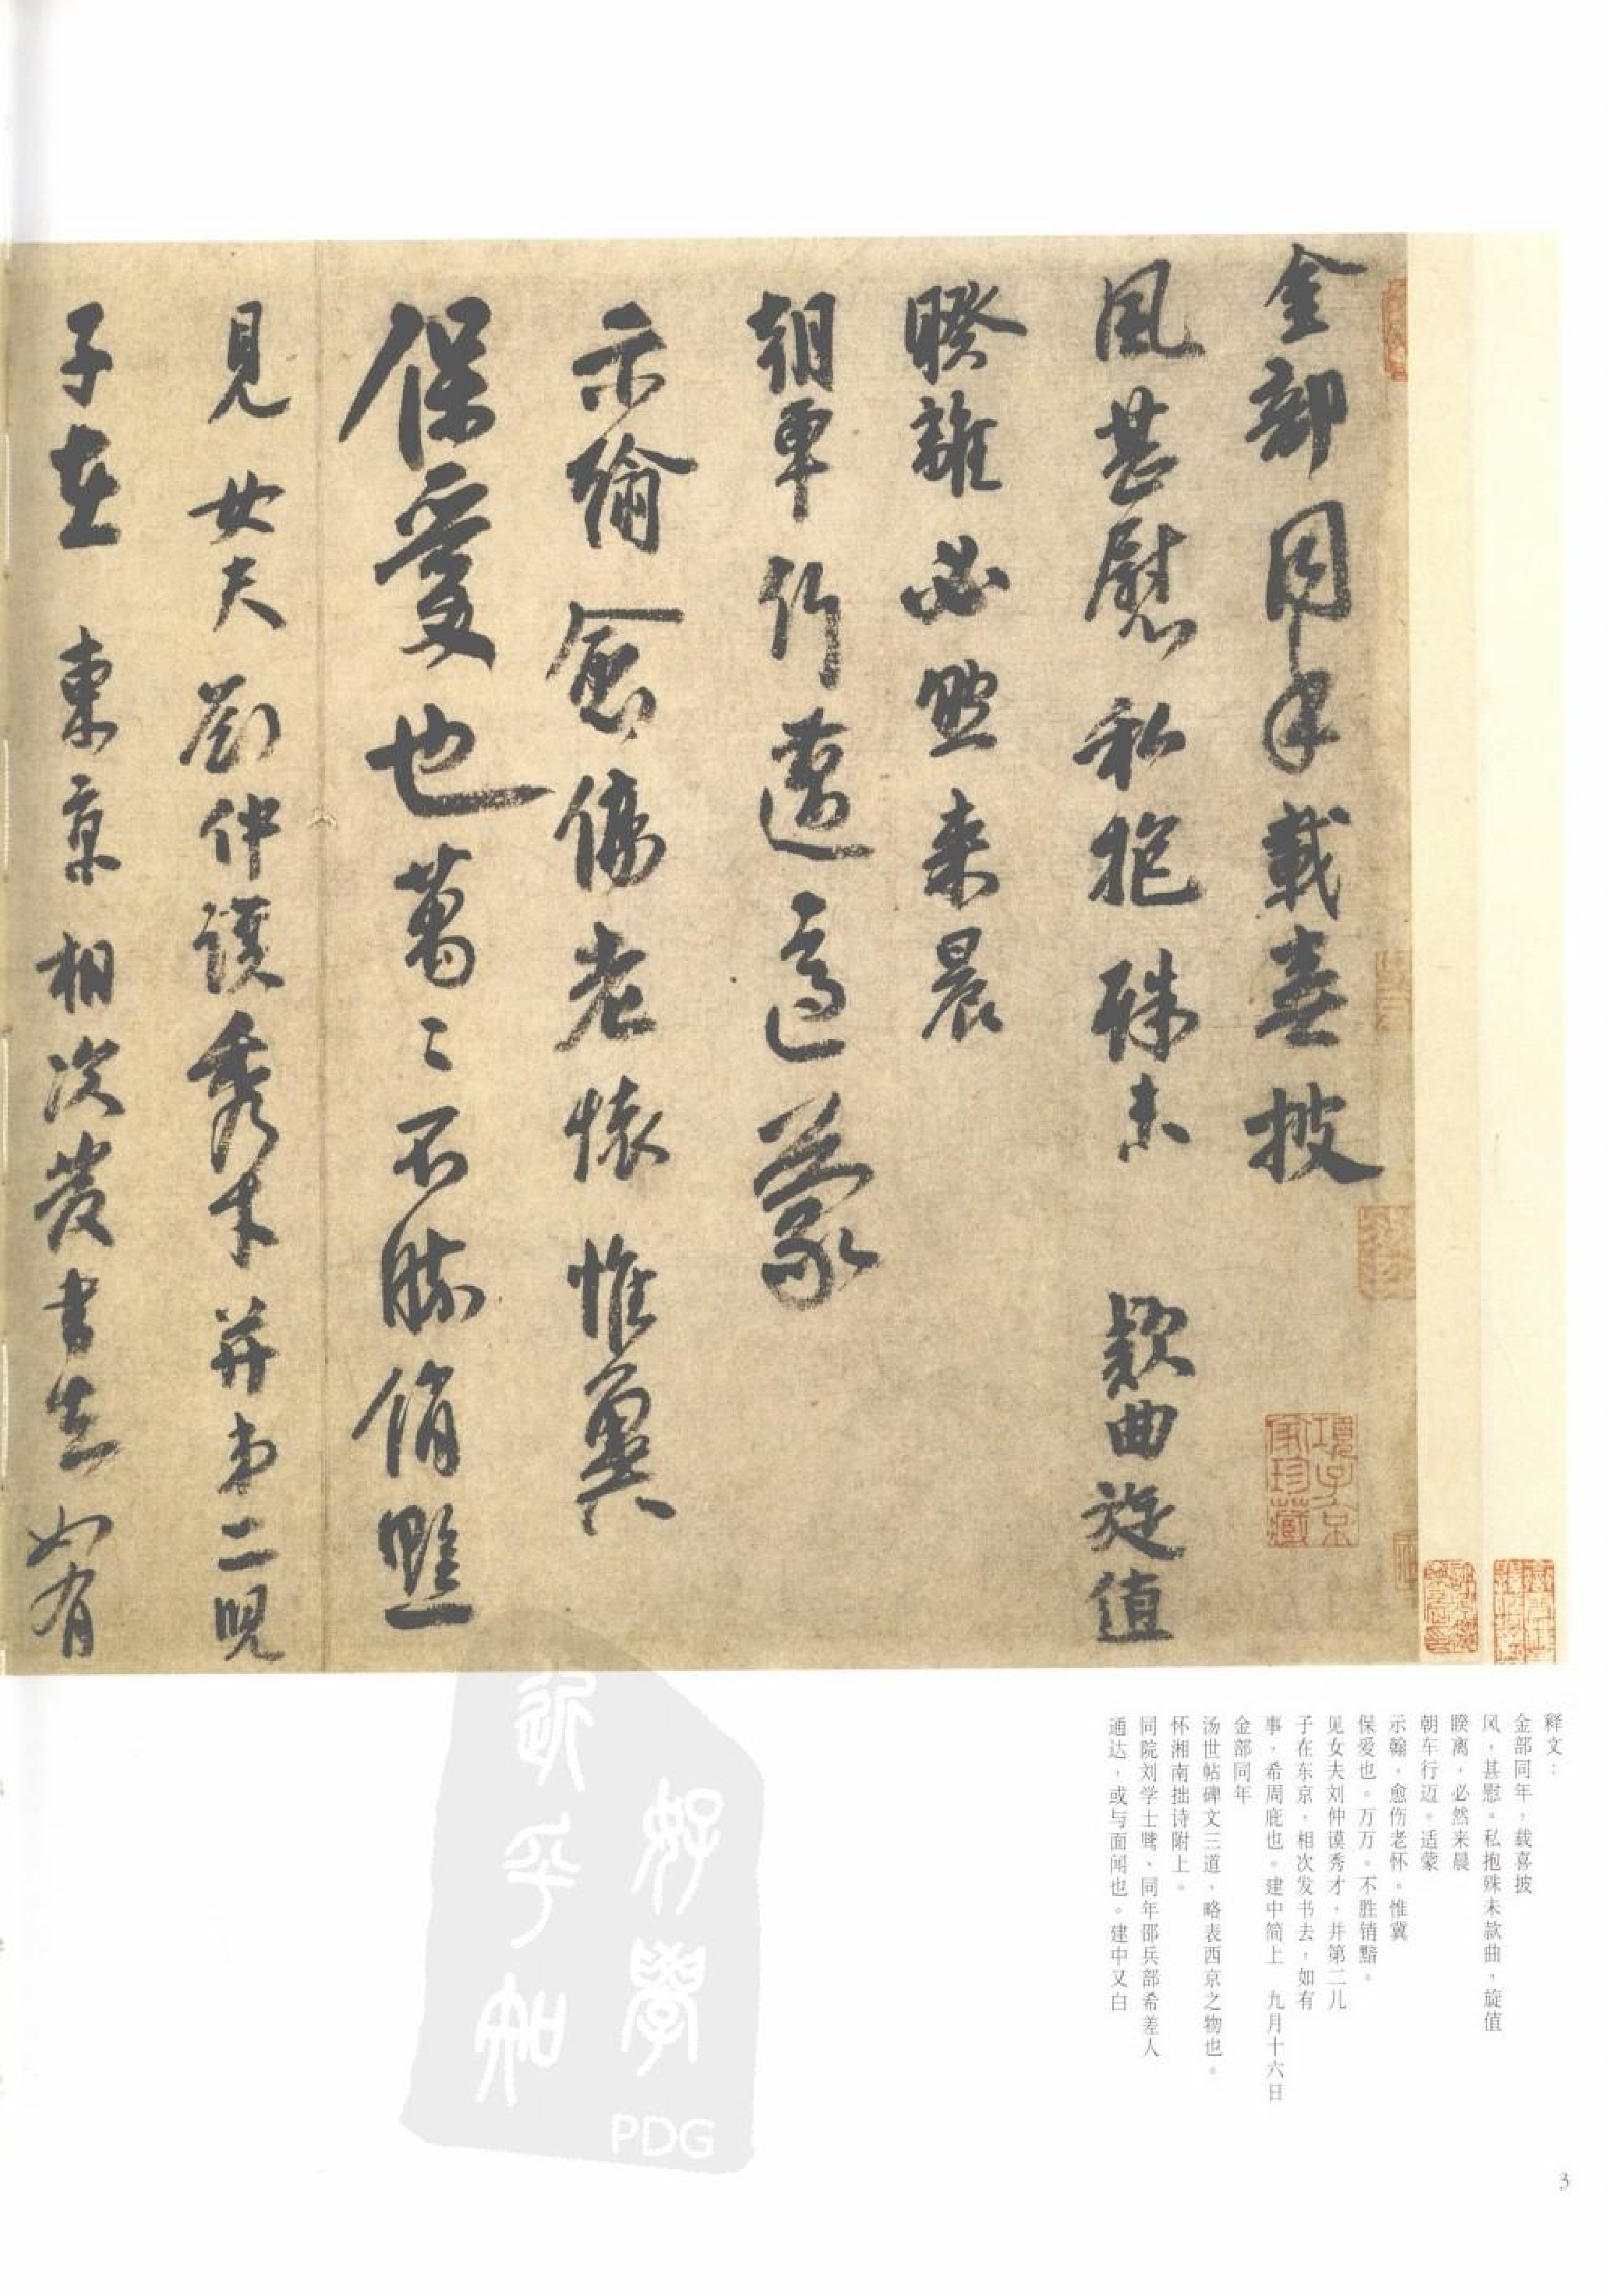 金部同年載喜披
風甚慰私抱殊未款曲旋值
睽離必然来晨
朝車行邁適蒙
示翰愈傷老懷惟冀
保愛也萬〻不勝銷黯
見女夫劉仲謨秀才并弟二児
子在東京相次發書去如有
項子京家珍藏
释文：
金部同年，载喜披
风，甚慰。私抱殊未款曲，旋值
睽离，必然来晨
朝车行迈。适蒙
示翰，愈伤老怀。惟冀
保爱也。万万。不胜销黯。
见女夫刘仲谟秀才，并第二儿
子在东京，相次发书去，如有
事，希周庇也。建中简上 九月十六日
金部同年
汤世帖碑文三道，略表西京之物也。
怀湘南拙诗附上。
同院刘学士骘、同年邵兵部希差人
通达，或与面闻也。建中又白
PDG
3